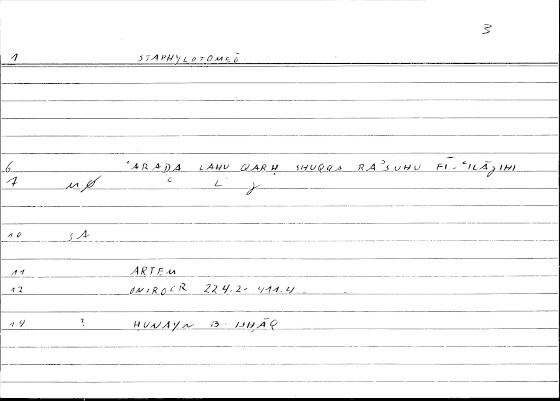 3
1 STAPHYLOTOMEŌ
6 ʿARAḌA LAHU QARḤ SHUQQA RAʾSUHU FĪ-ʿILĀǧIHI
7 mø c L
10 SA
11 ARTEM
12 ONIROCR 224.2- 411.4
14 ? ḤUNAYN B. ISḤĀQ